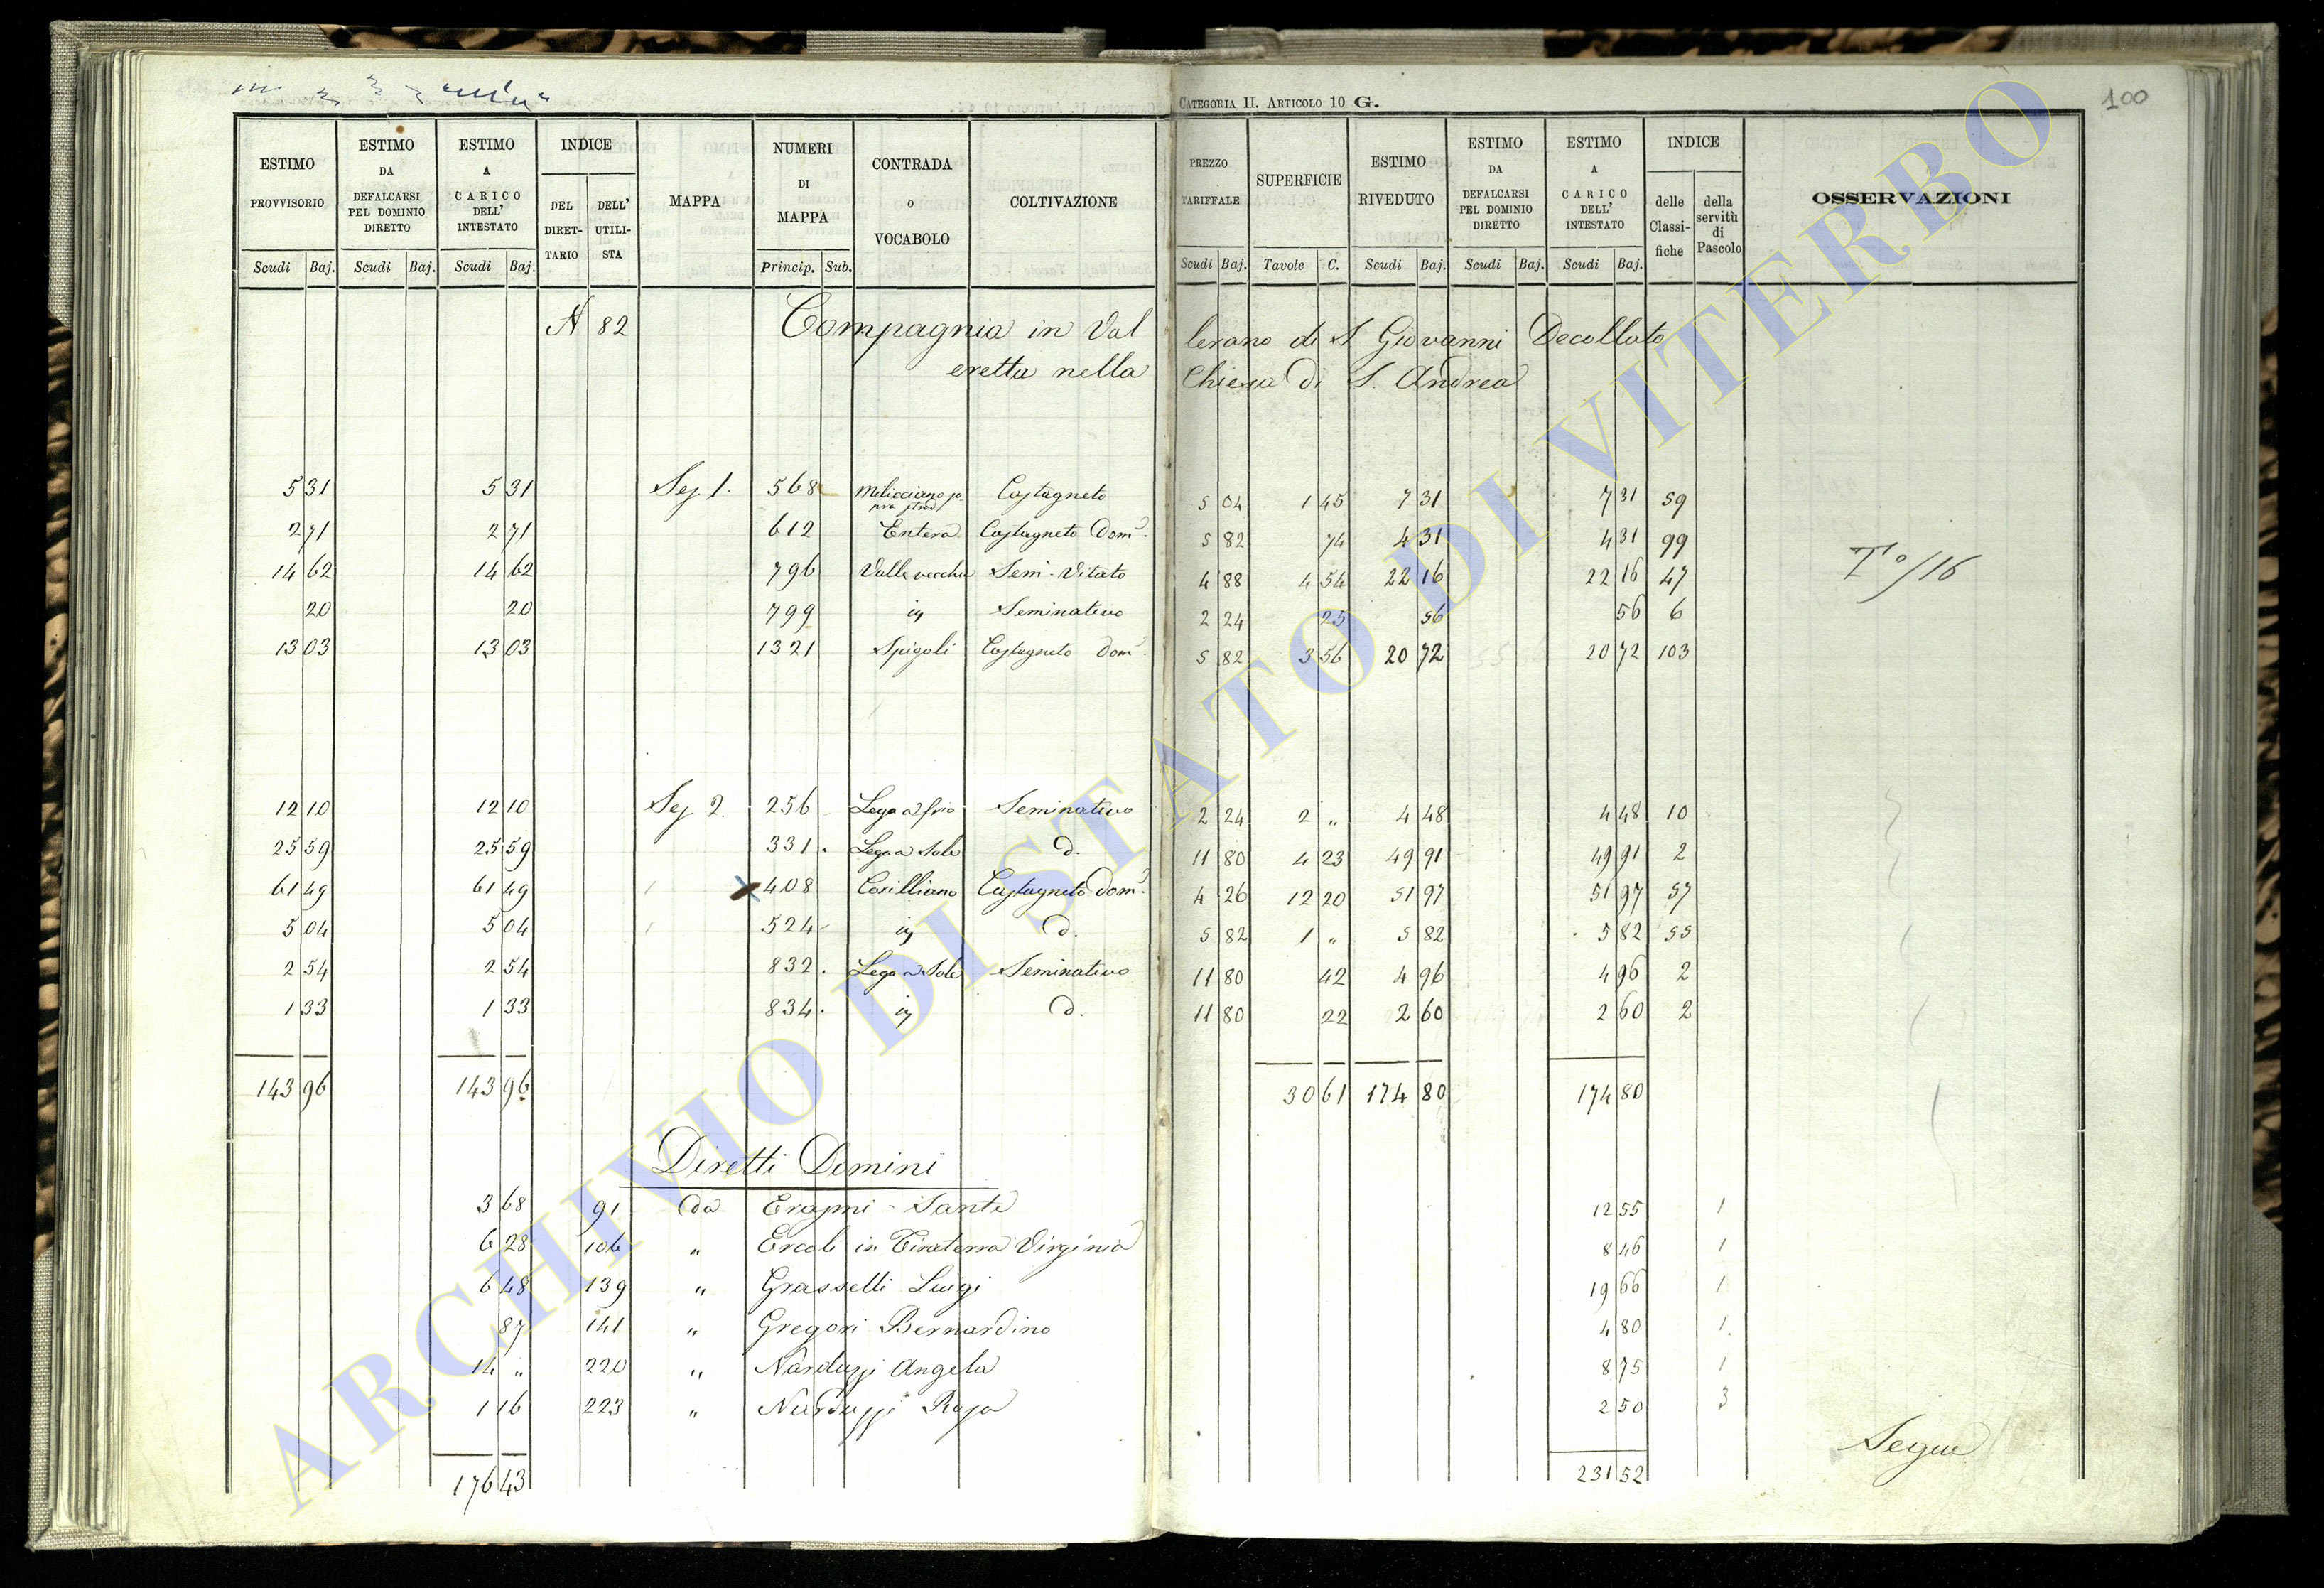 CATEGORIA II. ARTICOLO 10 G.
100
ESTIMO PROVVISORIO Scudi Baj.
ESTIMO DA DEFALCARSI PEL DOMINIO DIRETTO Scudi Baj.
ESTIMO A CARICO DELL' INTESTATO Scudi Baj.
INDICE DEL DIRET-TARIO DELL' UTILI-STA
MAPPA
NUMERI DI MAPPA Princip. Sub.
CONTRADA o VOCABOLO
COLTIVAZIONE
PREZZO TARIFFALE Scudi Baj.
SUPERFICIE Tavole C.
ESTIMO RIVEDUTO Scudi Baj.
ESTIMO DA DEFALCARSI PEL DOMINIO DIRETTO Scudi Baj.
ESTIMO A CARICO DELL' INTESTATO Scudi Baj.
INDICE delle Classi-fiche della servitù di Pascolo
OSSERVAZIONI
N 82 Compagnia in Val lerano di S. Giovanni Decollato
eretta nella Chiesa di S. Andrea
5 31 5 31 Sez. 1. 568 Milicciano so pra strad Castagneto 5 04 1 45 7 31 7 31 59
2 71 2 71 612 Entera Castagneto Dom. 5 82 74 4 31 4 31 99
14 62 14 62 796 Valle vecchia Sem. Vitato 4 88 4 54 22 16 22 16 47
T°/16
20 20 799 iy Seminativo 2 24 25 56 56 6
13 03 13 03 1321 Spigoli Castagneto Dom. 5 82 3 56 20 72 20 72 103
12 10 12 10 Sez 2. 256 Lega a frio Seminativo 2 24 2 „ 4 48 4 48 10
25 59 25 59 331. Lega a Sole d. 11 80 4 23 49 91 49 91 2
61 49 61 49 408 Corilliano Castagneto Dom. 4 26 12 20 51 97 51 97 57
5 04 5 04 524 iy d. 5 82 1 „ 5 82 5 82 55
2 54 2 54 832. Lega a Sole Seminativo 11 80 42 4 96 4 96 2
1 33 1 33 834. iy d. 11 80 22 2 60 2 60 2
143 96 143 96 30 61 174 80 174 80
Diretti Domini
3 68 91 da Erasmi - Sante 12 55 1
6 28 106 „ Ercoli in Tiraterra Virginia 8 46 1
6 48 139 „ Grasselli Luigi 19 66 1
87 141 „ Gregori Bernardino 4 80 1.
14 „ 220 „ Narduzzi Angela 8 75 1
1 16 223 „ Narduzzi Rosa 2 50 3
Segue
176 43 231 52
ARCHIVIO DI STATO DI VITERBO